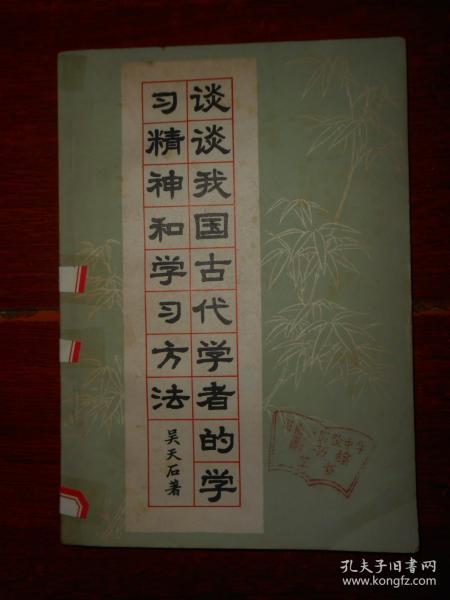 谈谈我国古代学者的学
习精神和学习方法
吴天石著
孔夫子旧书网
www.kongfz.com